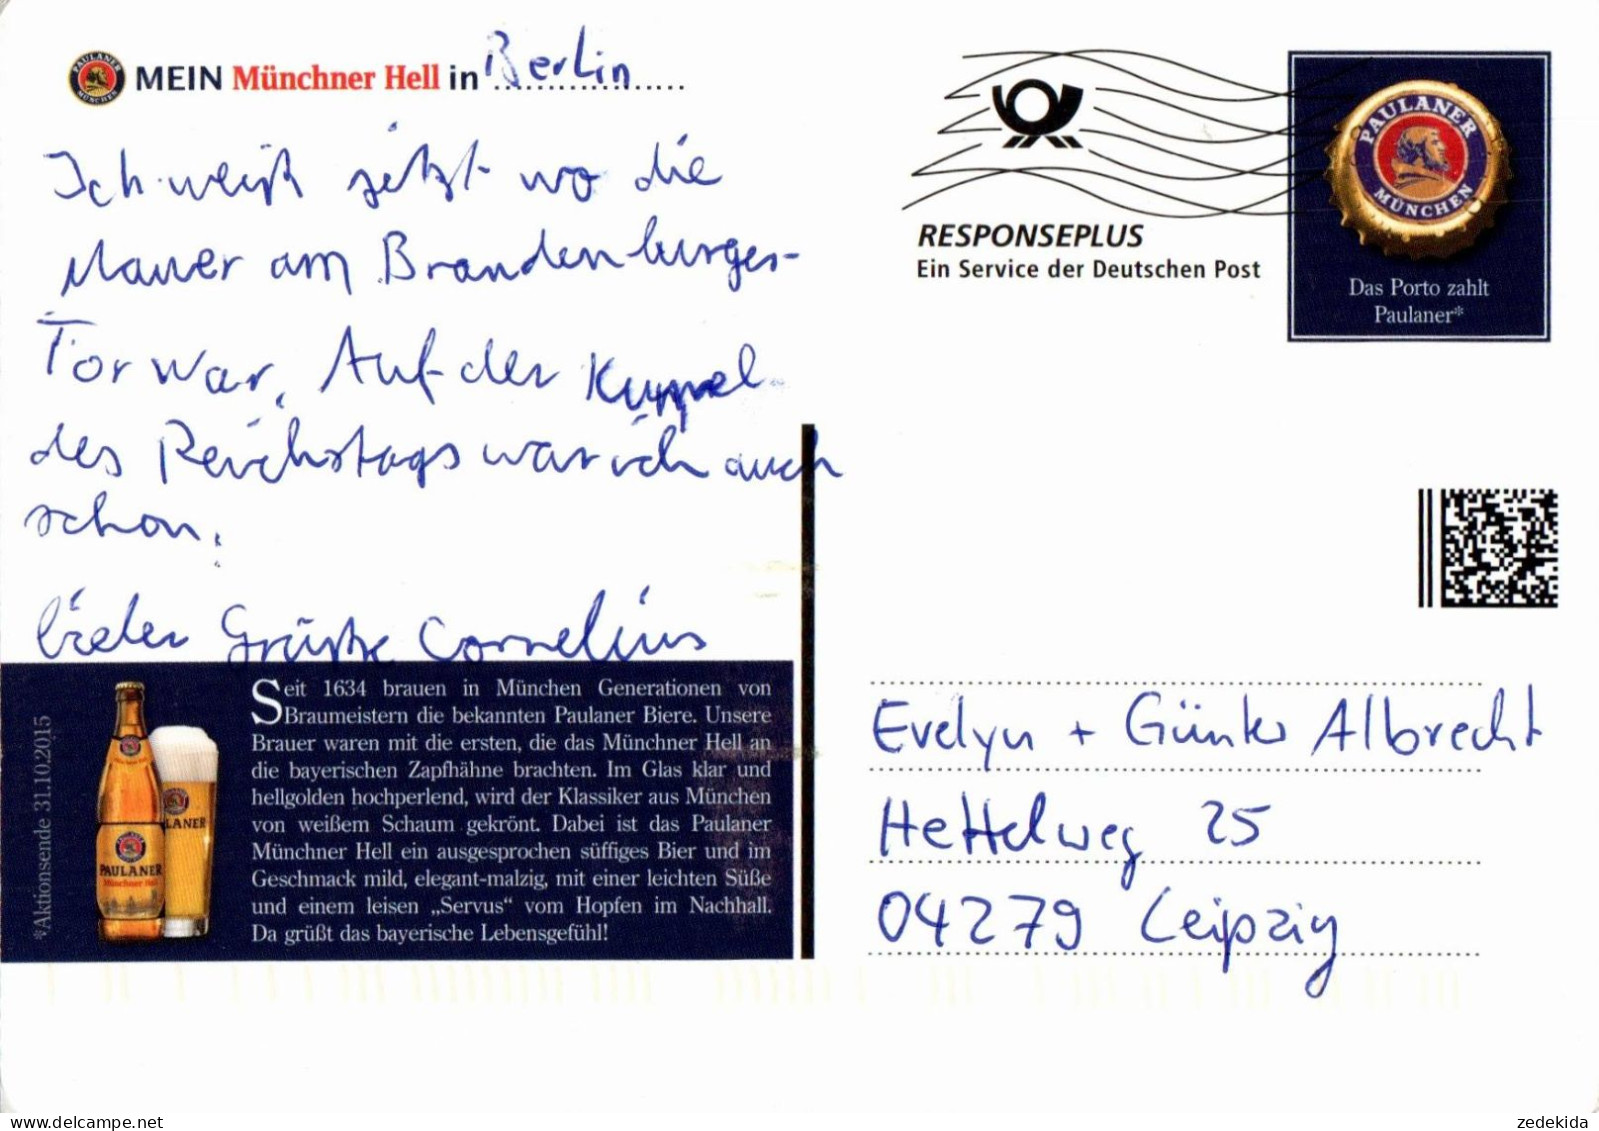 PAULANER
MÜNCHEN
MEIN Münchner Hell in Berlin
Ich weiß jetzt wo die
Mauer am Brandenburger-
Tor war. Auf der Kuppel
des Reichstags war ich auch
schon.
Vielen Grüße Cornelius
RESPONSEPLUS
Ein Service der Deutschen Post
PAULANER
MÜNCHEN
Das Porto zahlt
Paulaner*
*Aktionsende 31.10.2015
PAULANER
Münchner Hell
LANER
Seit 1634 brauen in München Generationen von
Braumeistern die bekannten Paulaner Biere. Unsere
Brauer waren mit die ersten, die das Münchner Hell an
die bayerischen Zapfhähne brachten. Im Glas klar und
hellgolden hochperlend, wird der Klassiker aus München
von weißem Schaum gekrönt. Dabei ist das Paulaner
Münchner Hell ein ausgesprochen süffiges Bier und im
Geschmack mild, elegant-malzig, mit einer leichten Süße
und einem leisen „Servus“ vom Hopfen im Nachhall.
Da grüßt das bayerische Lebensgefühl!
Evelyn + Günter Albrecht
Hettelweg 25
04279 Leipzig
zedekida